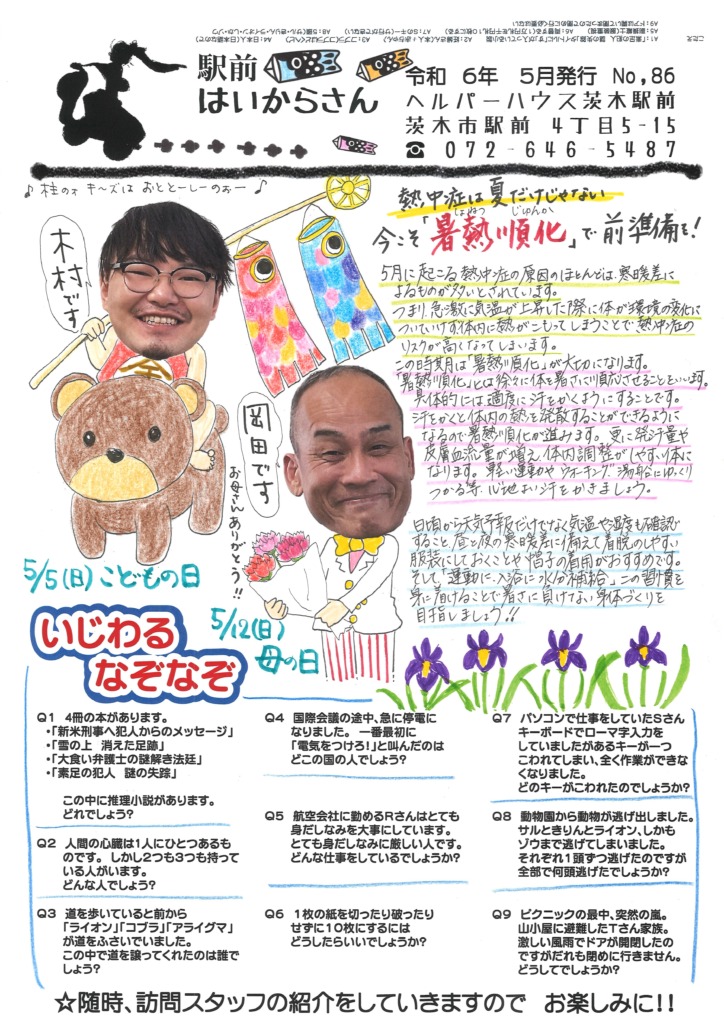 駅前
はいからさん
令和 6年 5月発行 No,86
ヘルパーハウス茨木駅前
茨木市駅前 4丁目5-15
☎ 072-646-5487
熱中症は夏だけじゃない
しょねつ じゅんか
今こそ「暑熱順化」で前準備を!
木村です
岡田です
お母さんありがとう!!
5/5(日)こどもの日
5/12(日)
母の日
5月に起こる熱中症の原因のほとんどは、寒暖差に
よるものが多いとされています。
つまり、急激に気温が上昇した際に体が環境の変化に
ついていけず体内に熱がこもってしまうことで、熱中症の
リスクが高くなってしまいます。
この時期は「暑熱順化」が大切になります。
「暑熱順化」とは徐々に体を暑さに順応させることをいいます。
具体的には適度に汗をかくようにすることです。
汗をかくと体内の熱を発散することができるように
なるので暑熱順化が進みます。更に発汗量や
皮膚血流量が増え体内調整がしやすい体に
なります。軽い運動やウォーキング、湯船にゆっくり
つかる等、心地よい汗をかきましょう。
日頃から天気予報だけでなく気温や湿度も確認
すること、昼と夜の寒暖差に備えて着脱のしやすい
服装にしておくことや帽子の着用がおすすめです。
そして「運動に、入浴に水分補給」この習慣を
身に着けることで暑さに負けない身体づくりを
目指しましょう!!
いじわる
なぞなぞ
Q1 4冊の本があります。
・「新米刑事へ犯人からのメッセージ」
・「雪の上 消えた足跡」
・「大食い弁護士の謎解き法廷」
・「素足の犯人 謎の失踪」
この中に推理小説があります。
どれでしょう?
Q2 人間の心臓は1人にひとつあるも
のです。 しかし2つも3つも持って
いる人がいます。
どんな人でしょう?
Q3 道を歩いていると前から
「ライオン」「コブラ」「アライグマ」
が道をふさいでいました。
この中で道を譲ってくれたのは誰で
しょう?
Q4 国際会議の途中、急に停電に
なりました。 一番最初に
「電気をつけろ!」と叫んだのは
どこの国の人でしょう?
Q5 航空会社に勤めるRさんはとても
身だしなみを大事にしています。
とても身だしなみに厳しい人です。
どんな仕事をしているでしょうか?
Q6 1枚の紙を切ったり破ったり
せずに10枚にするには
どうしたらいいでしょうか?
Q7 パソコンで仕事をしていたSさん
キーボードでローマ字入力を
していましたがあるキーが一つ
こわれてしまい、全く作業ができな
くなりました。
どのキーがこわれたのでしょうか?
Q8 動物園から動物が逃げ出しました。
サルときりんとライオン、しかも
ゾウまで逃げてしまいました。
それぞれ1頭ずつ逃げたのですが
全部で何頭逃げたでしょうか?
Q9 ピクニックの最中、突然の嵐。
山小屋に避難したTさん家族。
激しい風雨でドアが開閉したの
ですがだれも閉めに行きません。
どうしてでしょうか?
☆随時、訪問スタッフの紹介をしていきますので お楽しみに!!